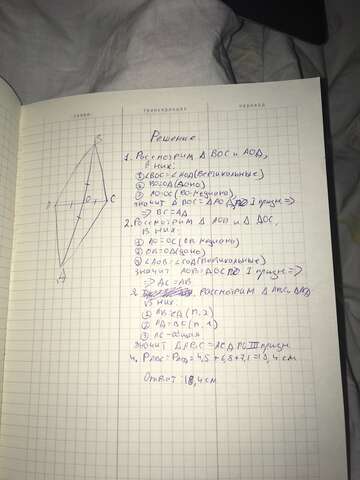 слово транскрипция перевод
Решение
1. Рассмотрим Δ BOC и AOD,
В них:
① ∠BOC = ∠AOD (вертикальные)
② BO=OD (дано)
③ AO=OC (BO-медиана)
значит Δ BOC = Δ AOD по I призн. ⇒
⇒ BC=AD
2. Рассмотрим Δ AOB и Δ DOC,
В них:
① AO=OC (OB медиана)
② OB=OD (дано)
③ ∠AOB = ∠COD (вертикальные)
значит AOB = DOC по I призн ⇒
3. рассмотрим Δ ABC и ΔACD
В них
③ AC-общая
значит Δ ABC = ACD по III призн.
4. PABC = PACD = 4,5 + 6,8 + 7,1 = 18,4 см
Ответ 18,4 см